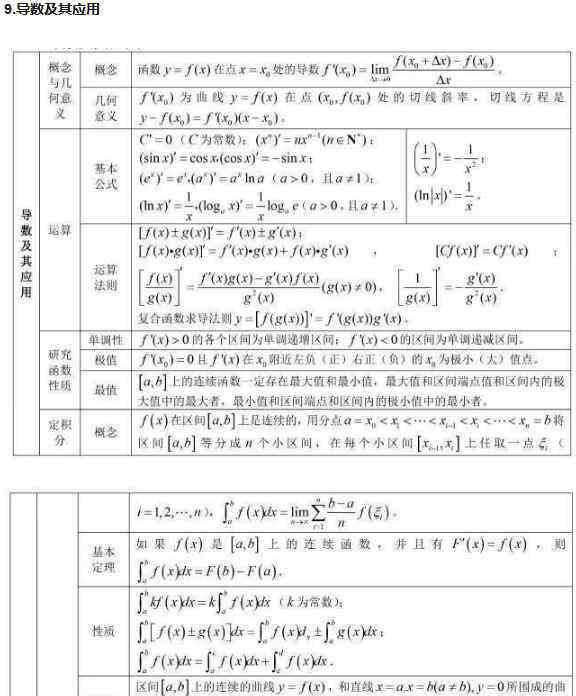 9.导数及其应用
导数及其应用
概念与几何意义
概念
函数 y = f(x) 在点 x = x₀ 处的导数 f'(x₀) = lim(Δx→0) [f(x₀ + Δx) − f(x₀)]/Δx 。
几何意义
f'(x₀) 为曲线 y = f(x) 在点 (x₀, f(x₀)) 处的切线斜率，切线方程是
y − f(x₀) = f'(x₀)(x − x₀)。
运算
基本公式
C' = 0（C 为常数）；(xⁿ)' = nxⁿ⁻¹(n∈N*)；
(sin x)' = cos x,(cos x)' = −sin x；
(eˣ)' = eˣ,(aˣ)' = aˣ ln a（a > 0，且 a ≠ 1）；
(ln x)' = 1/x,(logₐ x)' = 1/x logₐ e（a > 0，且 a ≠ 1）.
(1/x)' = −1/x²；
(ln|x|)' = 1/x .
运算法则
[f(x) ± g(x)]' = f'(x) ± g'(x)；
[f(x)•g(x)]' = f'(x)•g(x) + f(x)•g'(x) ， [Cf(x)]' = Cf'(x) ；
[f(x)/g(x)]' = [f'(x)g(x) − g'(x)f(x)]/g²(x) (g(x) ≠ 0)，[1/g(x)]' = −g'(x)/g²(x) .
复合函数求导法则 y = [f(g(x))]' = f'(g(x))g'(x)。
研究函数性质
单调性
f'(x) > 0 的各个区间为单调递增区间；f'(x) < 0 的区间为单调递减区间。
极值
f'(x₀) = 0 且 f'(x) 在 x₀ 附近左负（正）右正（负）的 x₀ 为极小（大）值点。
最值
[a,b] 上的连续函数一定存在最大值和最小值，最大值和区间端点值和区间内的极
大值中的最大者，最小值和区间端点和区间内的极小值中的最小者。
定积分
概念
f(x) 在区间 [a,b] 上是连续的，用分点 a = x₀ < x₁ < ⋯ < xᵢ₋₁ < xᵢ < ⋯ < xₙ = b 将
区间 [a,b] 等分成 n 个小区间，在每个小区间 [xᵢ₋₁, xᵢ] 上任取一点 ξᵢ（
i = 1,2,⋯,n），∫ₐᵇ f(x)dx = lim(n→∞) Σ(i=1→n) (b−a)/n f(ξᵢ)。
基本定理
如果 f(x) 是 [a,b] 上的连续函数，并且有 F'(x) = f(x)，则
∫ₐᵇ f(x)dx = F(b) − F(a).
性质
∫ₐᵇ kf(x)dx = k∫ₐᵇ f(x)dx（k 为常数）；
∫ₐᵇ [f(x) ± g(x)]dx = ∫ₐᵇ f(x)dₓ ± ∫ₐᵇ g(x)dx；
∫ₐᵇ f(x)dx = ∫ₐᶜ f(x)dx + ∫꜀ᵈ f(x)dx .
区间 [a,b] 上的连续的曲线 y = f(x)，和直线 x = a,x = b(a ≠ b), y = 0 所围成的曲